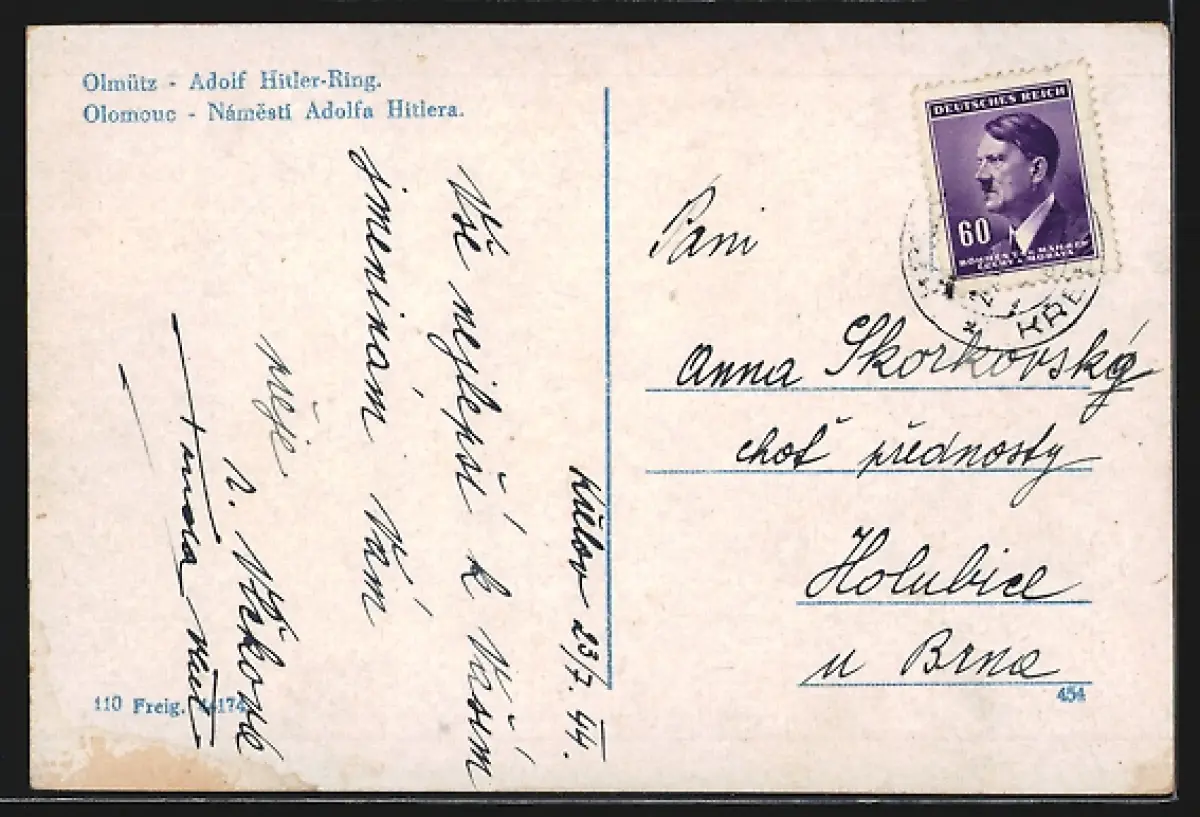 Olmütz - Adolf Hitler-Ring.
Olomouc - Náměstí Adolfa Hitlera.
DEUTSCHES REICH
60
BÖHMEN U. MÄHREN
ČECHY A MORAVA
KŘE
Paní
Anna Skorkovská
choť přednosty
Holubice
u Brna
454
23/7. 44.
Vše nejlepší k Vašim
jmeninám Vám
přeje
110 Freig.